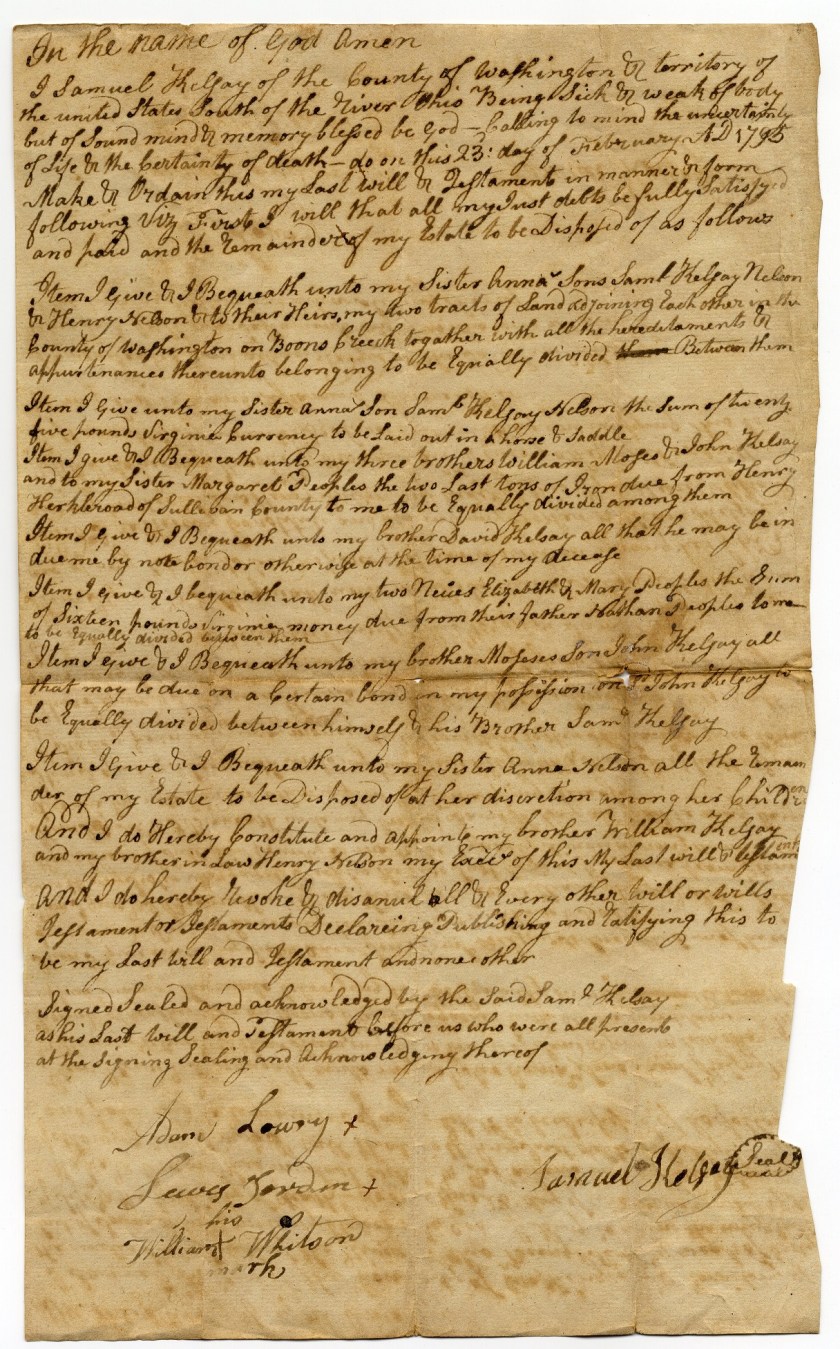 In the name of God Amen
I Samuel Kelsay of the County of Washington & territory of
the united States South of the River Ohio Being Sick & weak of body
but of Sound mind & memory blessed be God – Calling to mind the uncertainty
of Life & the Certainty of death – do on this 23d day of February AD 1795
Make & Ordain this my Last will & Testament in manner & form
following Viz First I will that all my Just debts be fully Satisfyed
and paid and the Remainder of my Estate to be Disposed of as follows
Item I Give & I Bequeath unto my Sister Annas Sons Saml Kelsay Nelson
& Henry Nelson & to their Heirs, my two tracts of Land adjoining Each other in the
County of Washington on Boons Creek togather with all the heredetaments &
appurtenances thereunto belonging to be Equally divided Between them
Item I Give unto my Sister Annas Son Saml Kelsay Nelson the Sum of twenty
five pounds Virginia Currency to be Laid out in a horse & Saddle
Item I give & I Bequeath unto my three brothers William Moses & John Kelsay
and to my Sister Margaret Peoples the two Last tons of Iron due from Henry
Herkleroad of Sullivain County to me to be Equally divided among them
Item I Give & I Bequeath unto my brother David Kelsay all that he may be in
due me by note bond or otherwise at the time of my decease
Item I Give & I bequeath unto my two Neices Elizabeth & Mary Peoples the Sum
of Sixteen pounds Virginia money due from their father Nathan Peoples to me
to be Equally divided between them
Item I Give & I Bequeath unto my brother Moseses Son John Kelsay all
that may be due on a Certain bond in my possission on sd John Kelsay to
be Equally divided between himself & his Brother Saml Kelsay
Item I Give & I Bequeath unto my Sister Anna Nelson all the Remain
der of my Estate to be Disposed of at her discretion among her Children
And I do Hereby Constitute and appoint my brother William Kelsay
and my brother in Law Henry Nelson my Exrs of this My Last will & testament
And I do hereby Revoke & disanul all & Every other Will or wills
Testament or Testaments Declareing Publishing and Ratifying this to
be my Last Will and Testament and none other
Signed Sealed and acknowledged by the Said Saml Kelsay
as his Last will and Testament before us who were all present
at the Signing Sealing and Acknowledging thereof
Adam Lowry +
Lewis Jordan +
his
William + Whitson
mark
Samuel Kelsay Seal